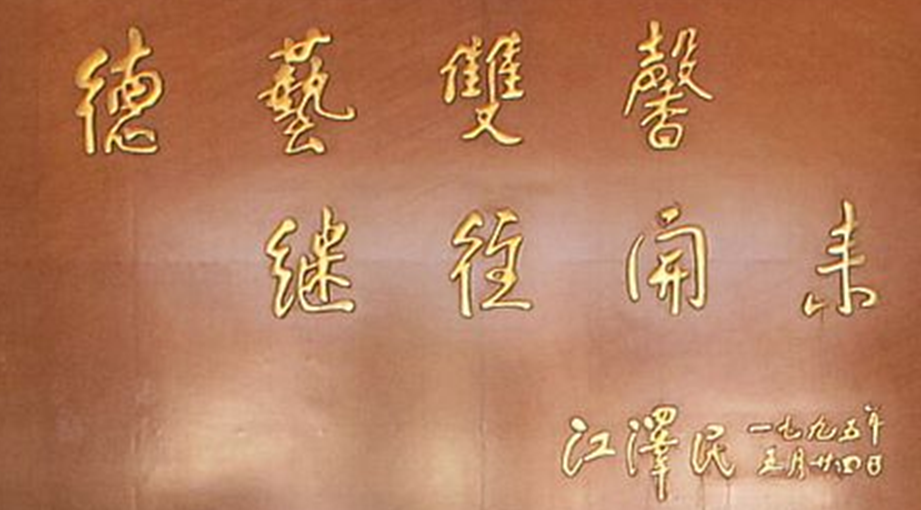 德藝雙馨
继往開来
江澤民
一九九五年
五月廿四日